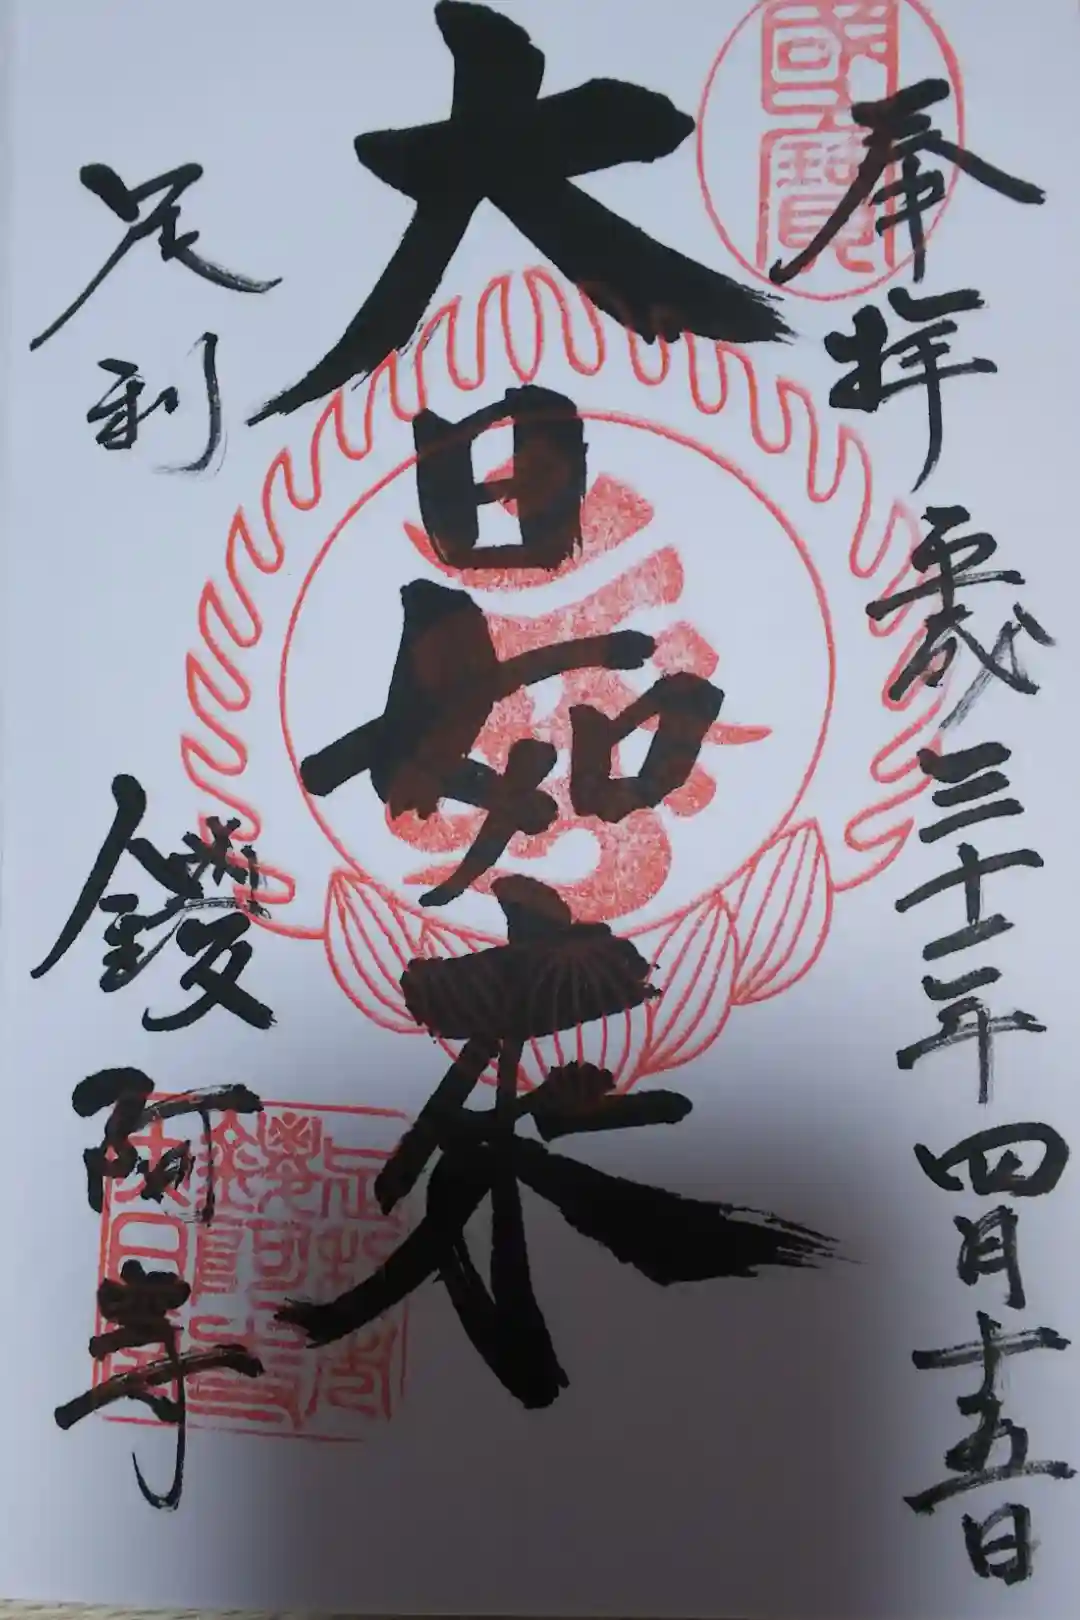 國寶
奉拝 平成三十一年四月十五日
大日如来
足利 鑁阿寺